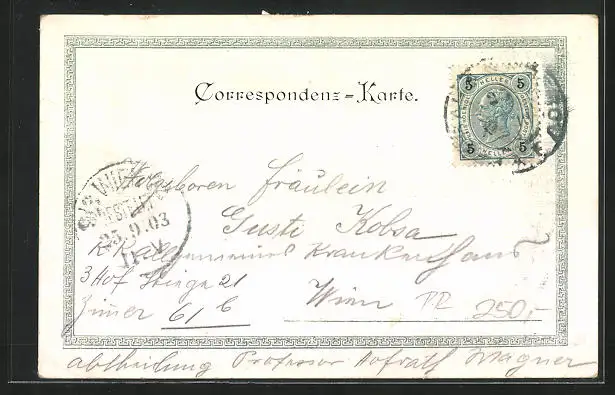 Correspondenz-Karte.
5 5
HELLER
5 5
WIEN
25.9.03
II.V
Fräulein
Gusti Kobsa
K. K. allgemeines Krankenhaus
3 Hof Stiege 21
Zimer 61 b
Wien
250,-
abtheilung Professor Hofrath Wagner